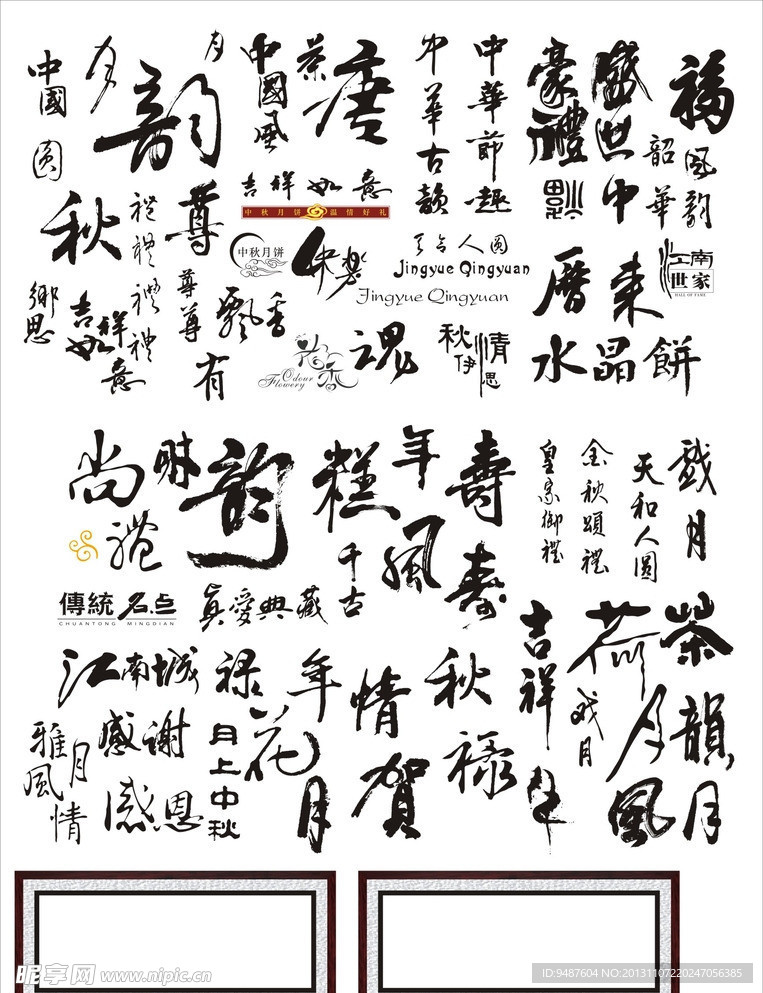 中國
圆
月
韵
月
中國風
茶
唐
中华古韻
中華節趣
豪禮
盛世中
福
風韵
韶華
吉祥如意
中秋月饼 温情好礼
秋
尊
中秋月饼
人圆
Jingyue Qingyuan
Jingyue Qingyuan
江南
世家
HALL OF FAME
鄉思
吉祥如意
禮
禮
尊
尊
飄香
有
花香
Odour
Flowery
魂
秋伊
情思
水晶餅
尚
禮
韵
糕
年
風
千古
壽
寿
皇家御禮
金秋頌禮
天和人圆
戏月
傳統名点
CHUANTONG MINGDIAN
真愛典藏
吉祥
荷
茶
江南城
禄
年
情
秋
戏月
月
韻
雅風
月情
感谢
感恩
月上中秋
花
月
賀
禄
風
月
昵享网 www.nipic.cn
ID:9487604 NO:20131107220247056385